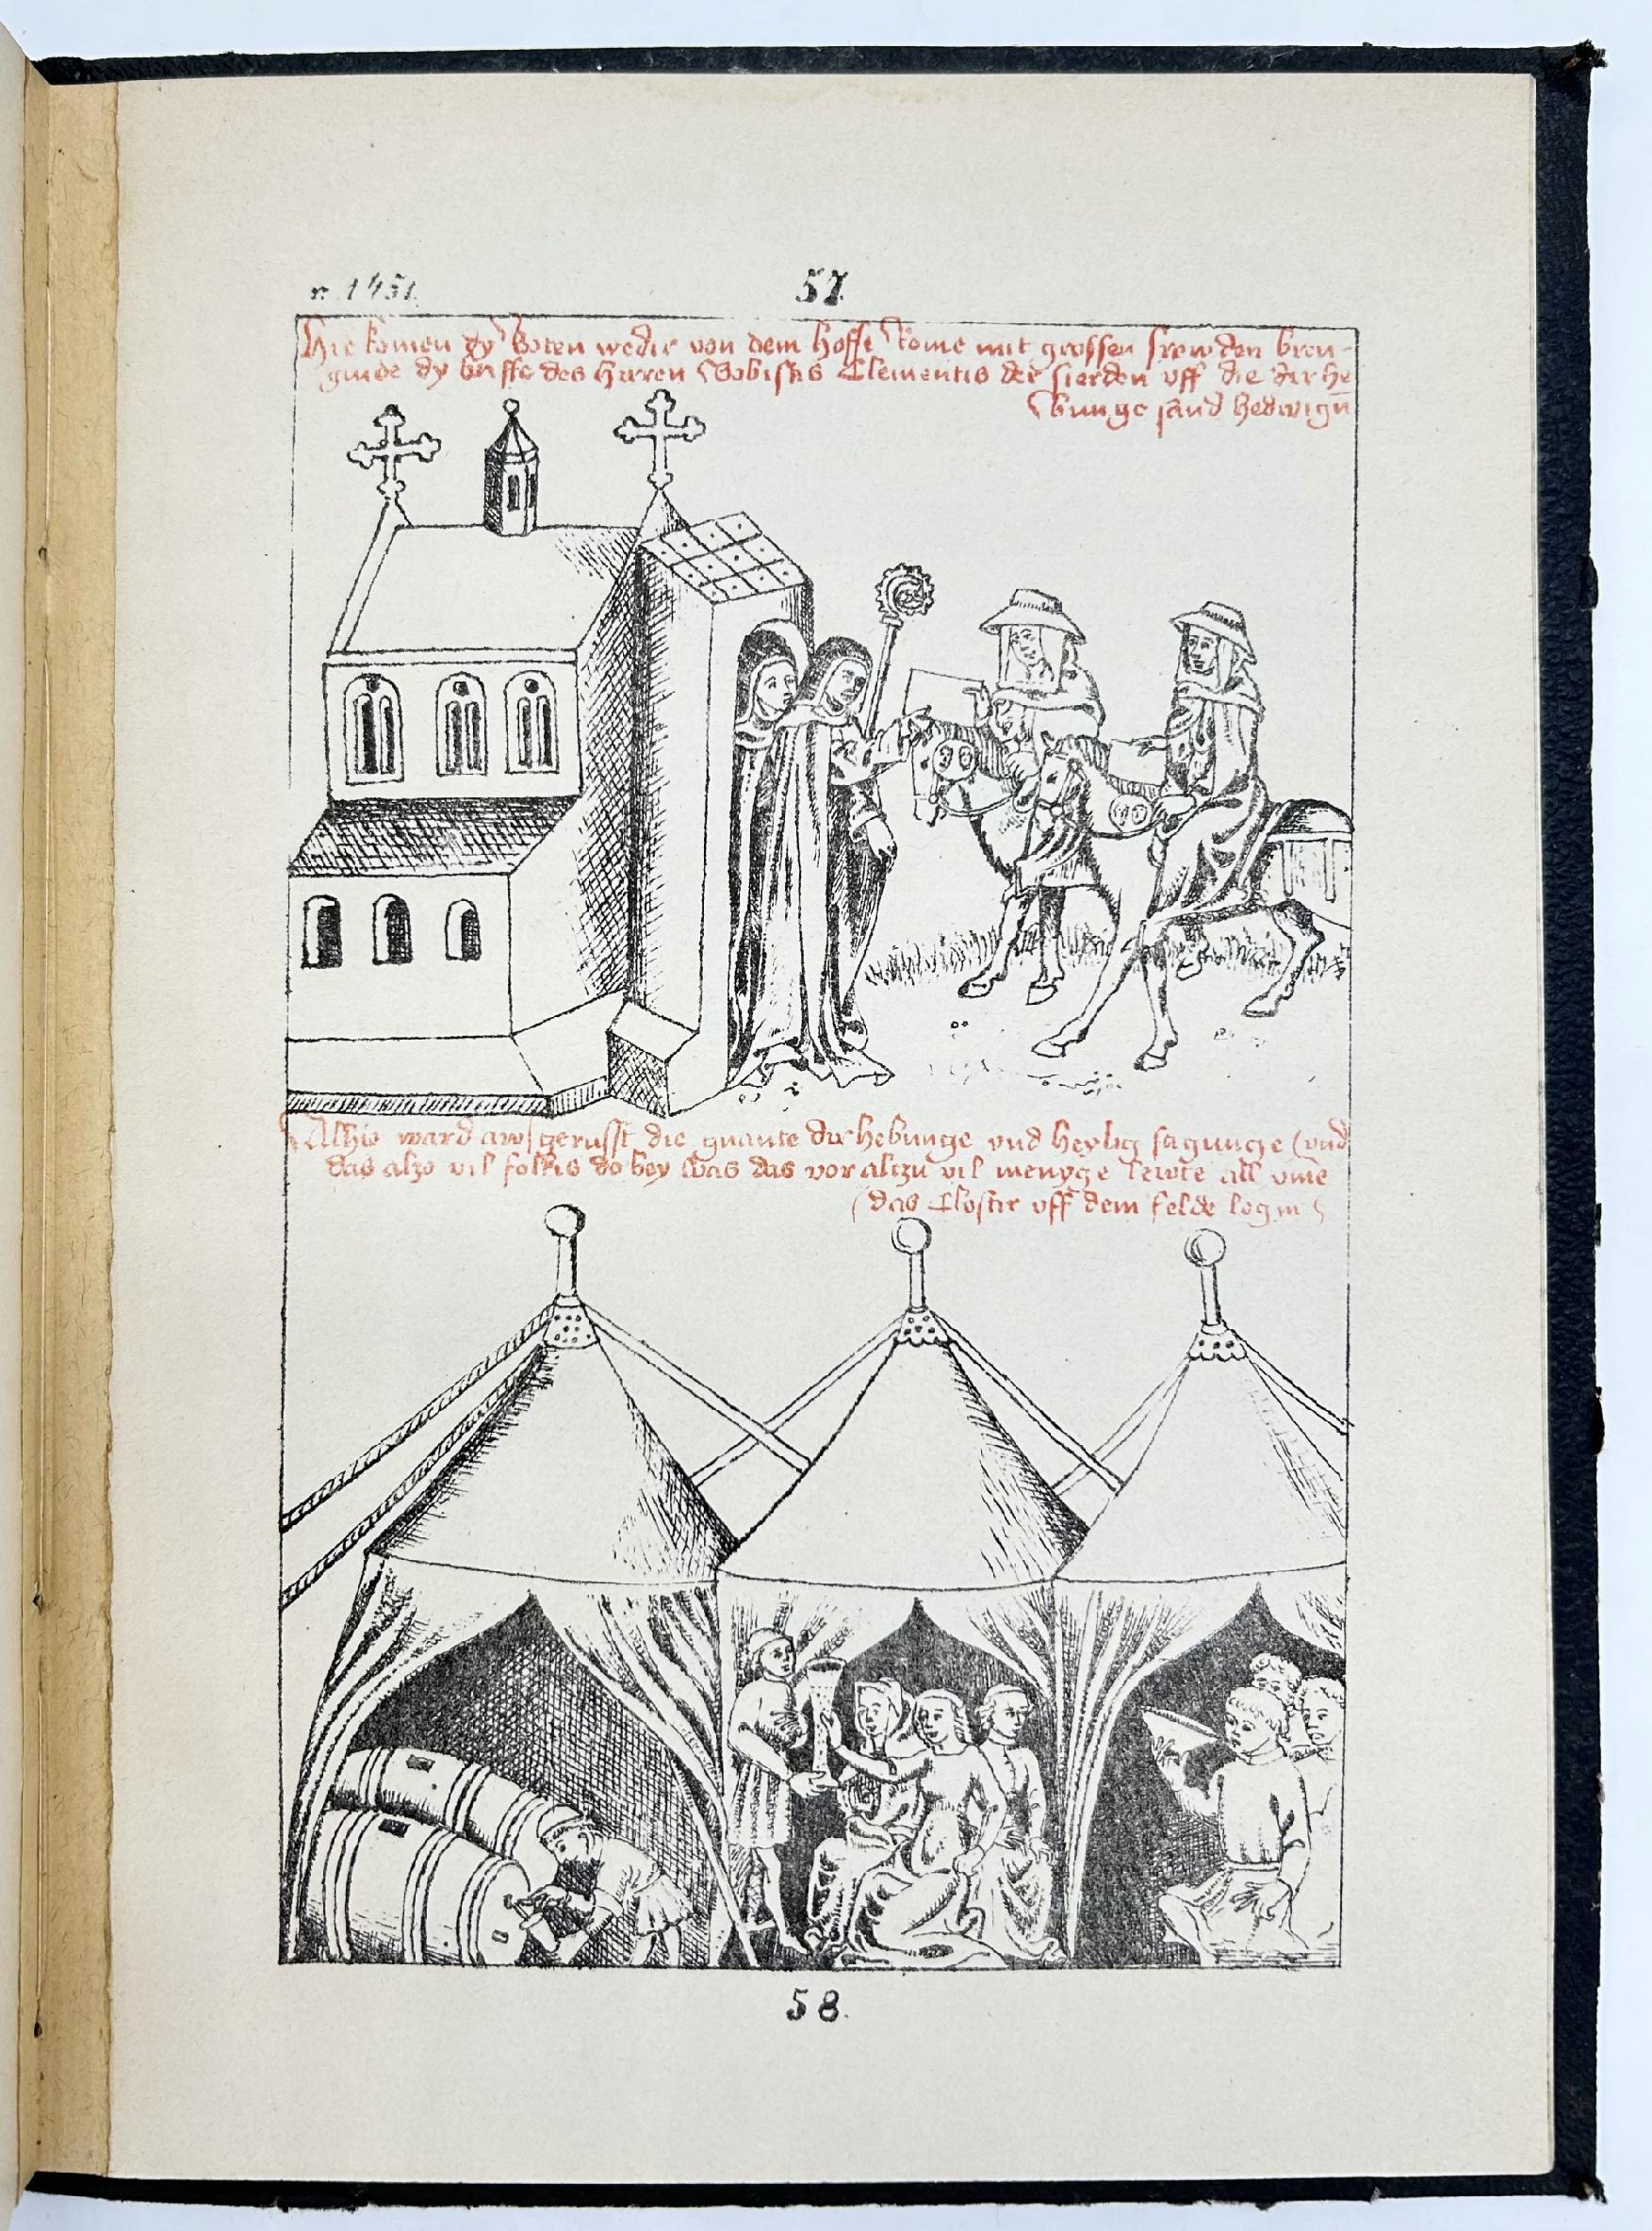 n. 1451.
57.
Hie komen dy Boten wedir von dem Hoffe Rome mit grossen frowden bren-
ginde dy briffe des Hirren Bobistis Clementis des fierden uff die dirhe
bunge sand Hedwign
Alhie ward aws geruff̄t die gnante dirhebunge vnd heylig sagunge (vnd
das alzo vil folkis do bey was das vor alczu vil menyge lewte all vme
(das Closter uff dem felde legin)
58.